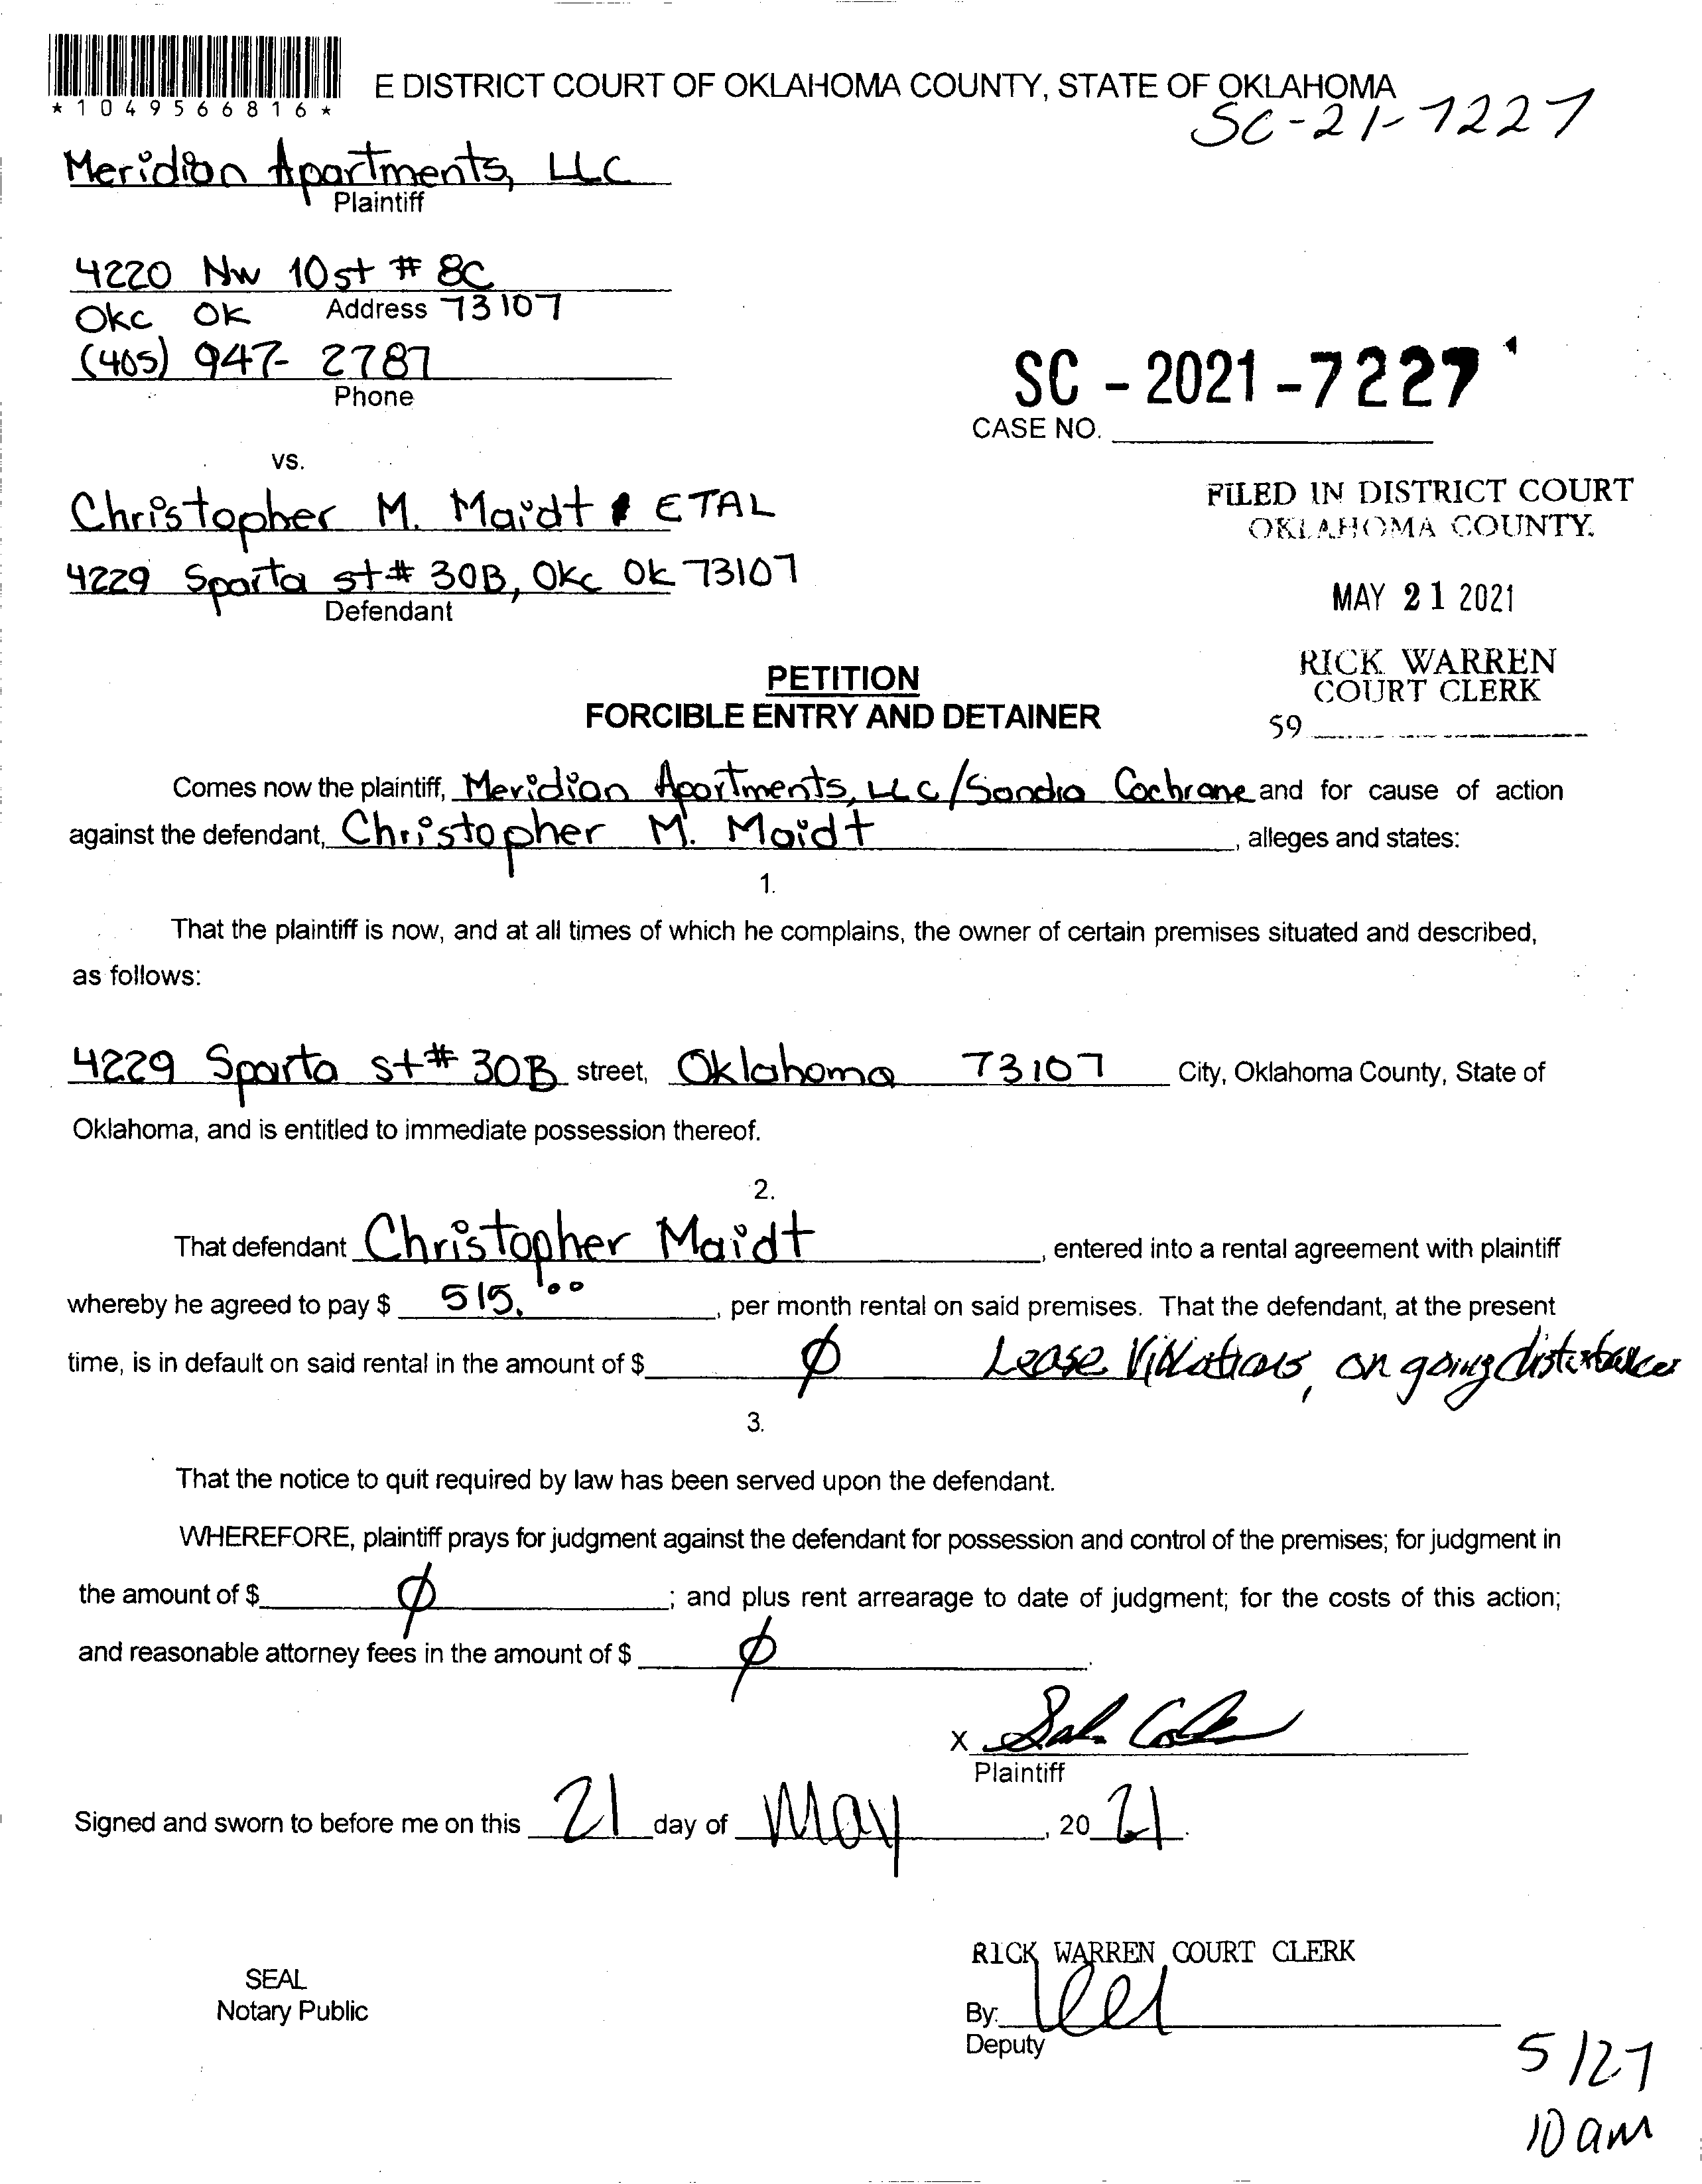 *1049566816*
E DISTRICT COURT OF OKLAHOMA COUNTY, STATE OF OKLAHOMA
SC-21-7227
Meridian Apartments, LLC
Plaintiff
4220 NW 10st # 8C
Okc OK Address 73107
(405) 947-2787
Phone
SC - 2021 - 7227
CASE NO.
vs.
Christopher M. Maidt ETAL
4229 Sparta st# 30B, Okc Ok 73107
Defendant
FILED IN DISTRICT COURT
OKLAHOMA COUNTY.
MAY 21 2021
RICK WARREN
COURT CLERK
59
PETITION
FORCIBLE ENTRY AND DETAINER
Comes now the plaintiff, Meridian Apartments, LLC/Sandra Cochrane and for cause of action
against the defendant, Christopher M. Maidt, alleges and states:
1.
That the plaintiff is now, and at all times of which he complains, the owner of certain premises situated and described,
as follows:
4229 Sparta st# 30B street, Oklahoma 73107 City, Oklahoma County, State of
Oklahoma, and is entitled to immediate possession thereof.
2.
That defendant Christopher Maidt, entered into a rental agreement with plaintiff
whereby he agreed to pay $ 515.00, per month rental on said premises. That the defendant, at the present
time, is in default on said rental in the amount of $ ∅ Lease Violations, on going disturbances
3.
That the notice to quit required by law has been served upon the defendant.
WHEREFORE, plaintiff prays for judgment against the defendant for possession and control of the premises; for judgment in
the amount of $ ∅; and plus rent arrearage to date of judgment; for the costs of this action;
and reasonable attorney fees in the amount of $ ∅.
X
Plaintiff
Signed and sworn to before me on this 21 day of May, 20 21.
SEAL
Notary Public
RICK WARREN COURT CLERK
By:
Deputy
5/27
10 am